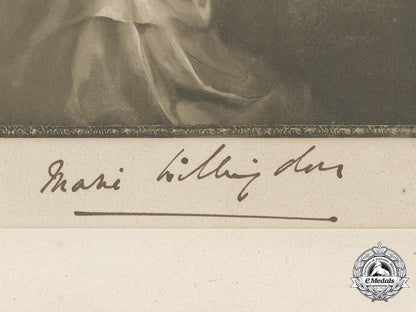 Marie Willingdon
eMedals